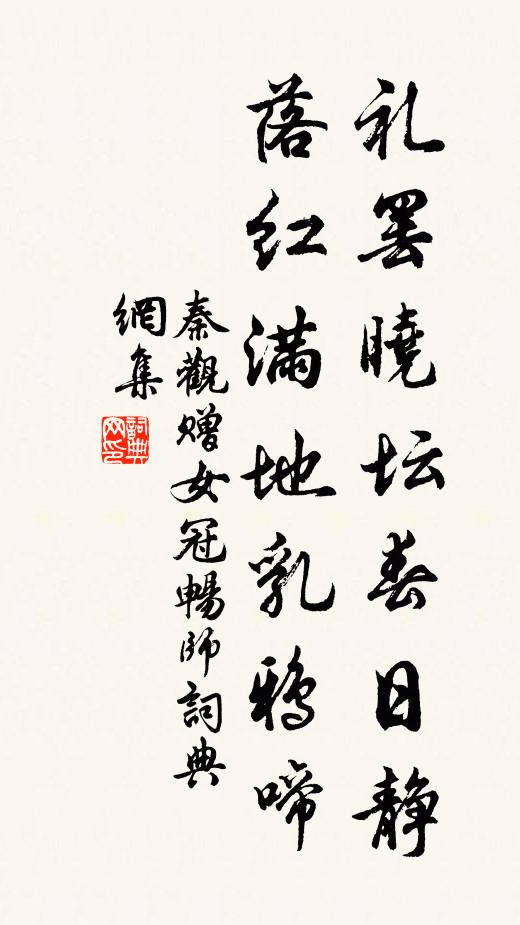 礼罢曉坛春日静
落红满地乳鸦啼
秦觀赠女冠暢师詞典
網集
詞典网印